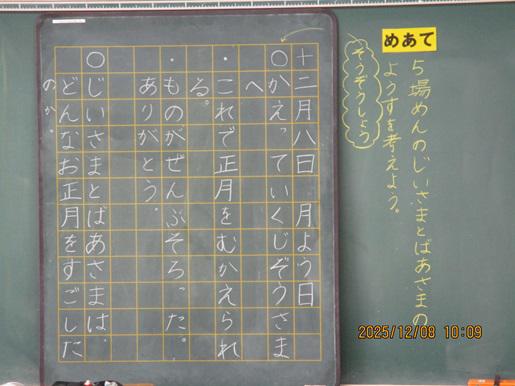 めあて
5場めんのじいさまとばあさまの
ようすを考えよう。
そうぞうしよう
十二月八日 月よう日
○かえっていくじぞうさま
へ
・これで正月をむかえられ
る。
・ものがぜんぶそろった。
ありがとう。
○じいさまとばあさまは、
どんなお正月をすごした
のか。
2025/12/08 10:09